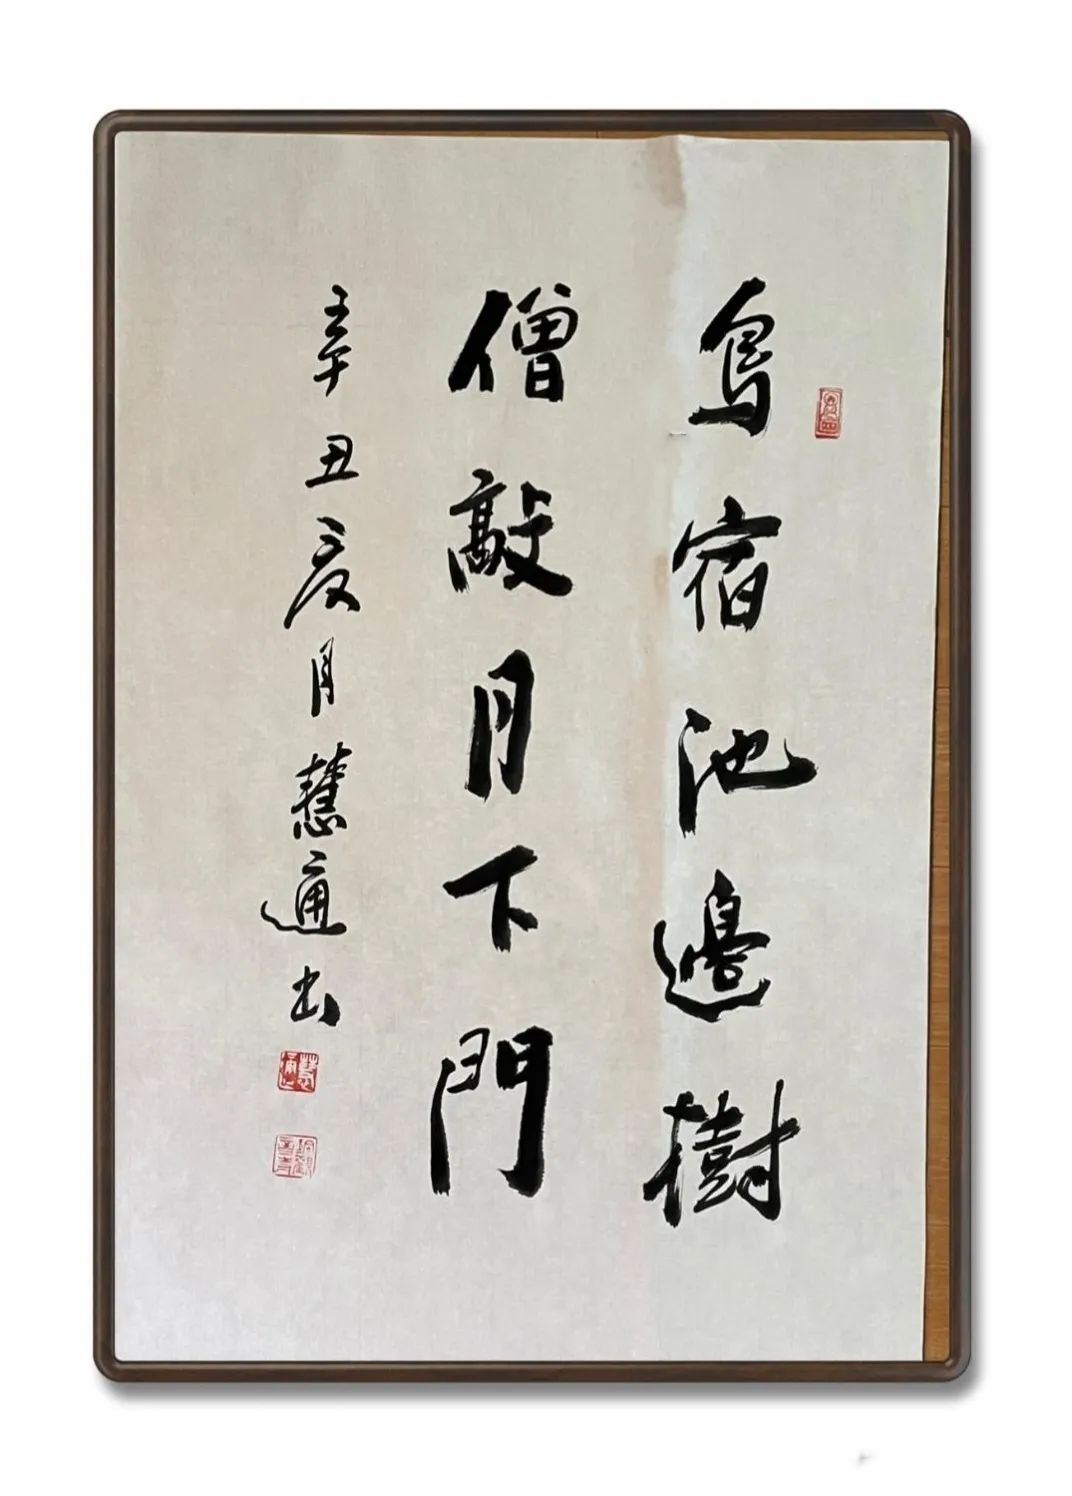 鳥宿池邊樹
僧敲月下門
辛丑夏月慧通书
慧通